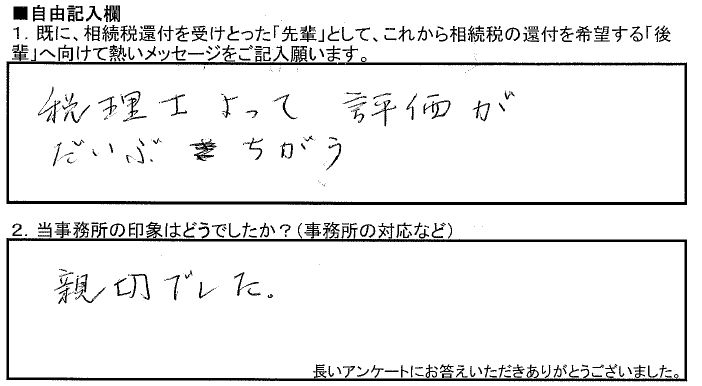 ■自由記入欄
1．既に、相続税還付を受けとった「先輩」として、これから相続税の還付を希望する「後
輩」へ向けて熱いメッセージをご記入願います。
税理士よって 評価が
だいぶ ちがう
2．当事務所の印象はどうでしたか？（事務所の対応など）
親切でした。
長いアンケートにお答えいただきありがとうございました。